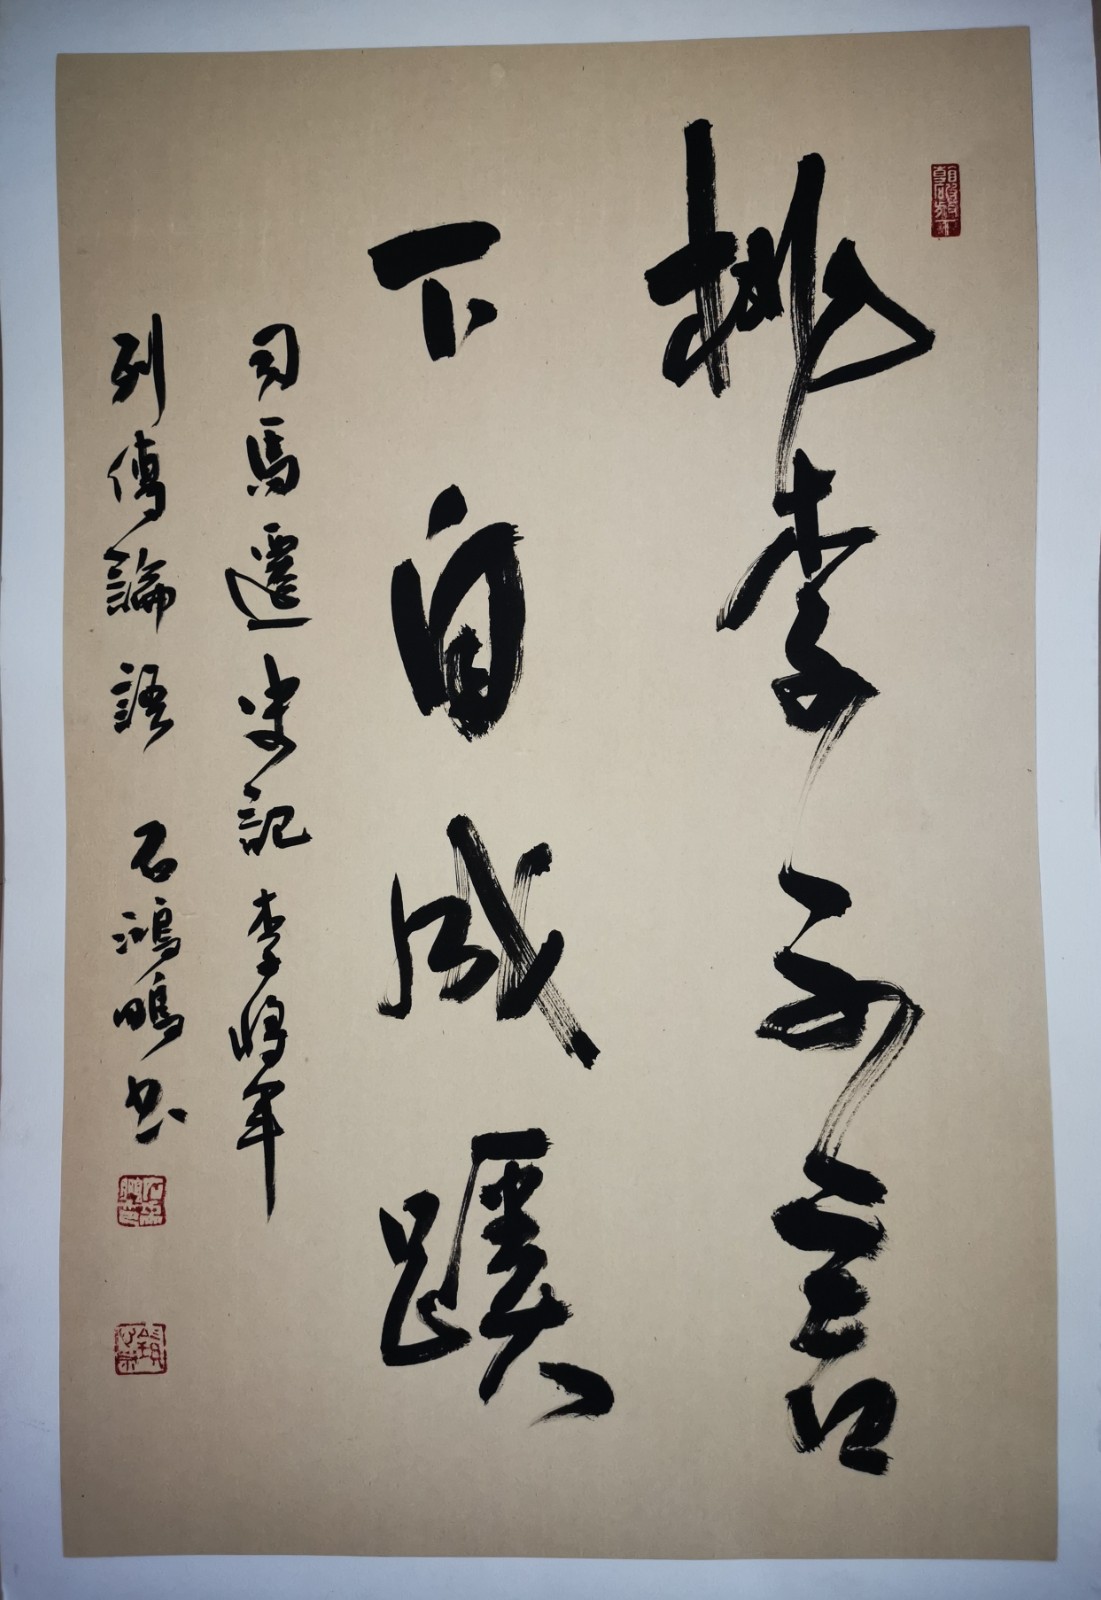 桃李不言
下自成蹊
司馬遷史記李將軍
列傳論語 石鴻鵬书